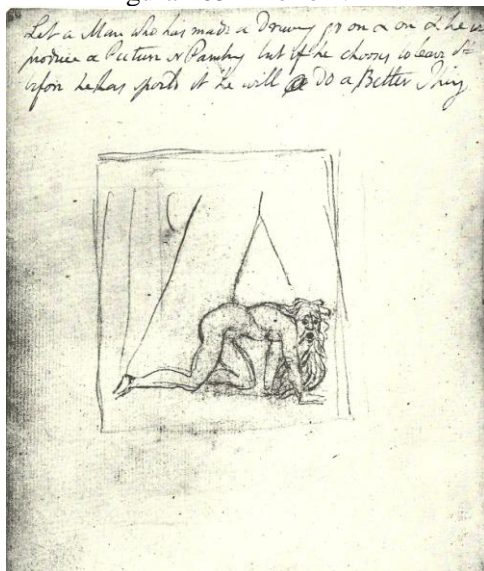 Let a Man who has made a Drawing go on & on & he
produce a Picture or Painting but if he chooses to leave it
before he has spoild it he will do a Better Thing